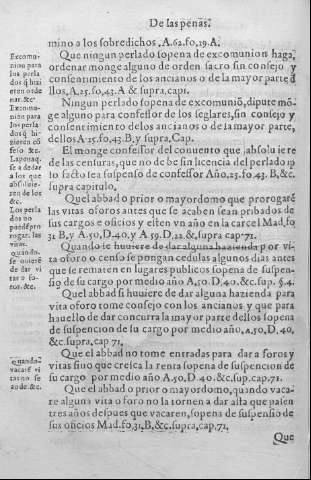 De las penas.
mino a los sobredichos. A.62.fo.19.A.
Que ningun perlado sopena de excomunion haga,
ordenar monge alguno de orden sacro sin consejo y
consentimiento de los ancianos o de la mayor parte d
llos, A.25.fo,43.A & supra capi.
Ningun perlado sopena de excomunió, dipute mó-
ge alguno para confessor de los seglares, sin consejo y
consentimiento delos ancianos o de la mayor parte,
dellos A.25.fo.43.B, y supra. Cap.
El monge confessor del conuento que absoluiere
de las censuras, que no de be sin licencia del perlado ip
so facto sea suspenso de confessor Año, 25.fo.43. B, &c.
supra capitulo.
Quel abbad o prior o mayordomo que prorogaré
las vitas o foros antes que se acaben sean pribados de
sus cargos e oficios y esten vn año en la carcel Mad, fo
31 B, y A.50, D.40, y A 59. D.22, &, supra cap-71.
Quando se huuiere de dar alguna hazienda por vi-
ta oforo o censo se pongan cedulas algunos dias antes
que se rematen en lugares publicos sopena de suspen-
sio de su cargo por medio año A,50. D.40, &c. sup. §.4.
Quel abbad si huuiere de dar alguna hazienda para
vita oforo tome consejo con los ancianos y que para
hauello de dar concurra la mayor parte dellos sopena
de suspencion de su cargo por medio año, A.50, D.40,
&c. supra, cap 71,
Que el abbad no tome entradas para dar a foros y
vitas sino que cresca la renta sopena de suspencion de
su cargo por medio año A.50. D.40. &c. sup. cap.71.
Que el abbad o prior o mayordomo, quando vaca-
re alguna vita o foro no la tornen a dar asta que passen
tres años despues que vacaren, sopena de suspensió de
sus oficios Mad. fo, 31, B, &c. supra, cap, 71.
Que
Excomu-
nion para
los perla
dos q hui
eren orde
nar. &c
Excomu-
nion para
los perla-
dos q hi-
uieren có
fesso &c.
se a dedar
a los que
absoluie-
ren de los
&c.
Los perla
dos no
rogar. las
vitas.
quando.
se ouieré
de dar vi
tas o fo-
ros. &c.
Quando
vacaré vi
tas no se
an de &c.